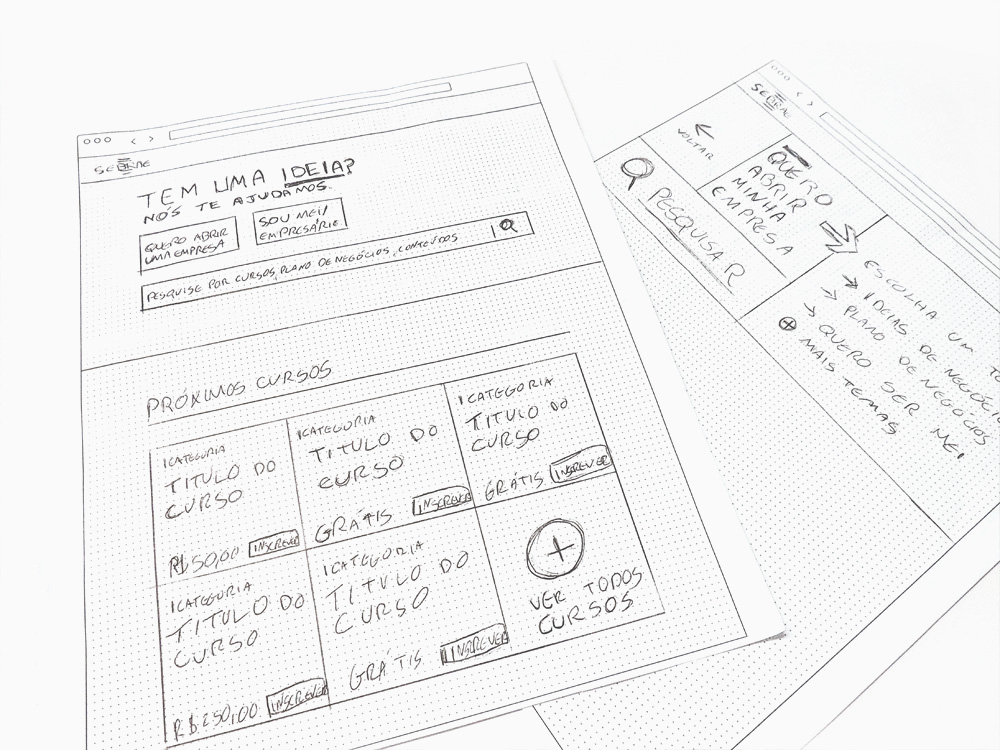 SEBRAE
TEM UMA IDEIA?
NÓS TE AJUDAMOS.
QUERO ABRIR
UMA EMPRESA
SOU MEI/
EMPRESÁRIE
PESQUISE POR CURSOS, PLANO DE NEGÓCIOS, CONTEÚDOS
PRÓXIMOS CURSOS
CATEGORIA
TITULO DO
CURSO
R$50,00 INSCREVER
CATEGORIA
TITULO DO
CURSO
GRÁTIS INSCREVER
CATEGORIA
TITULO DO
CURSO
GRÁTIS INSCREVER
CATEGORIA
TITULO DO
CURSO
R$250,00 INSCREVER
CATEGORIA
TITULO DO
CURSO
GRÁTIS INSCREVER
VER TODOS
CURSOS
SEBRAE
VOLTAR
PESQUISAR
QUERO
ABRIR
MINHA
EMPRESA
ESCOLHA UM
IDEIAS DE
PLANO DE NEGÓCIOS
QUERO SER MEI
MAIS TEMAS